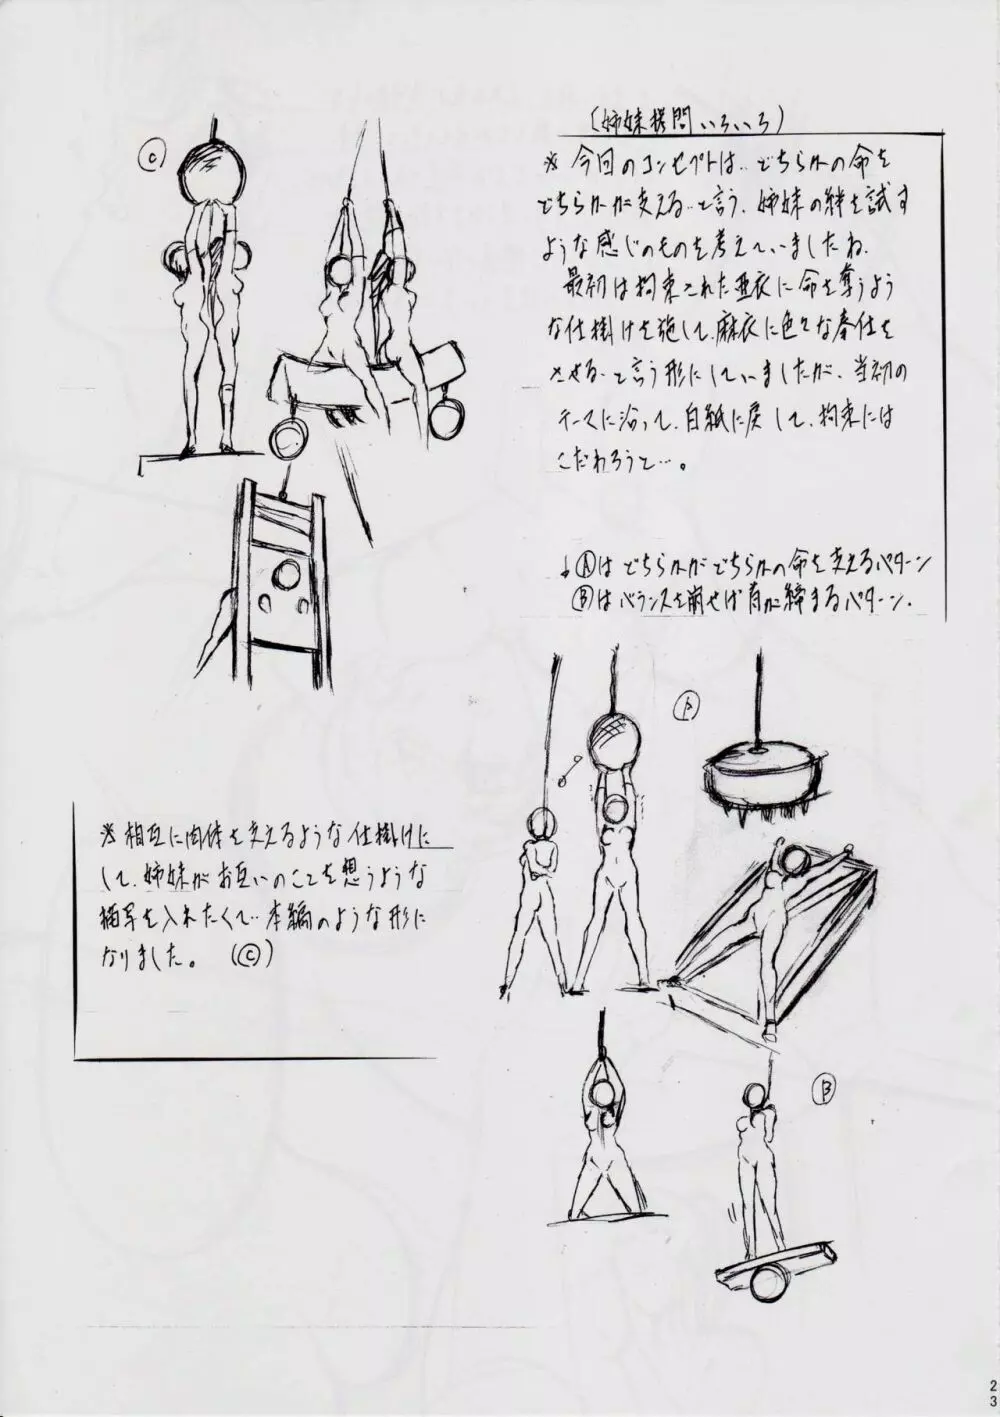 (姉妹拷問いろいろ)
※今回のコンセプトは‥どちらかの命を
どちらかが支える‥と言う、姉妹の絆を試す
ような感じのものを考えていましたね.
最初は拘束された亜衣に命を奪うよう
な仕掛けを施して、麻衣に色々な奉仕を
させる‥と言う形にしていましたが、当初の
テーマに沿って、白紙に戻して、拘束には
こだわろうと…。
↓Ⓐはどちらかがどちらかの命を支えるパターン
Ⓑはバランスを崩せば首が締まるパターン.
Ⓒ
Ⓐ
※相互に肉体を支えるような仕掛けに
して、姉妹がお互いのことを想うような
描写を入れたくて‥本編のような形に
なりました。 (Ⓒ)
Ⓑ
23